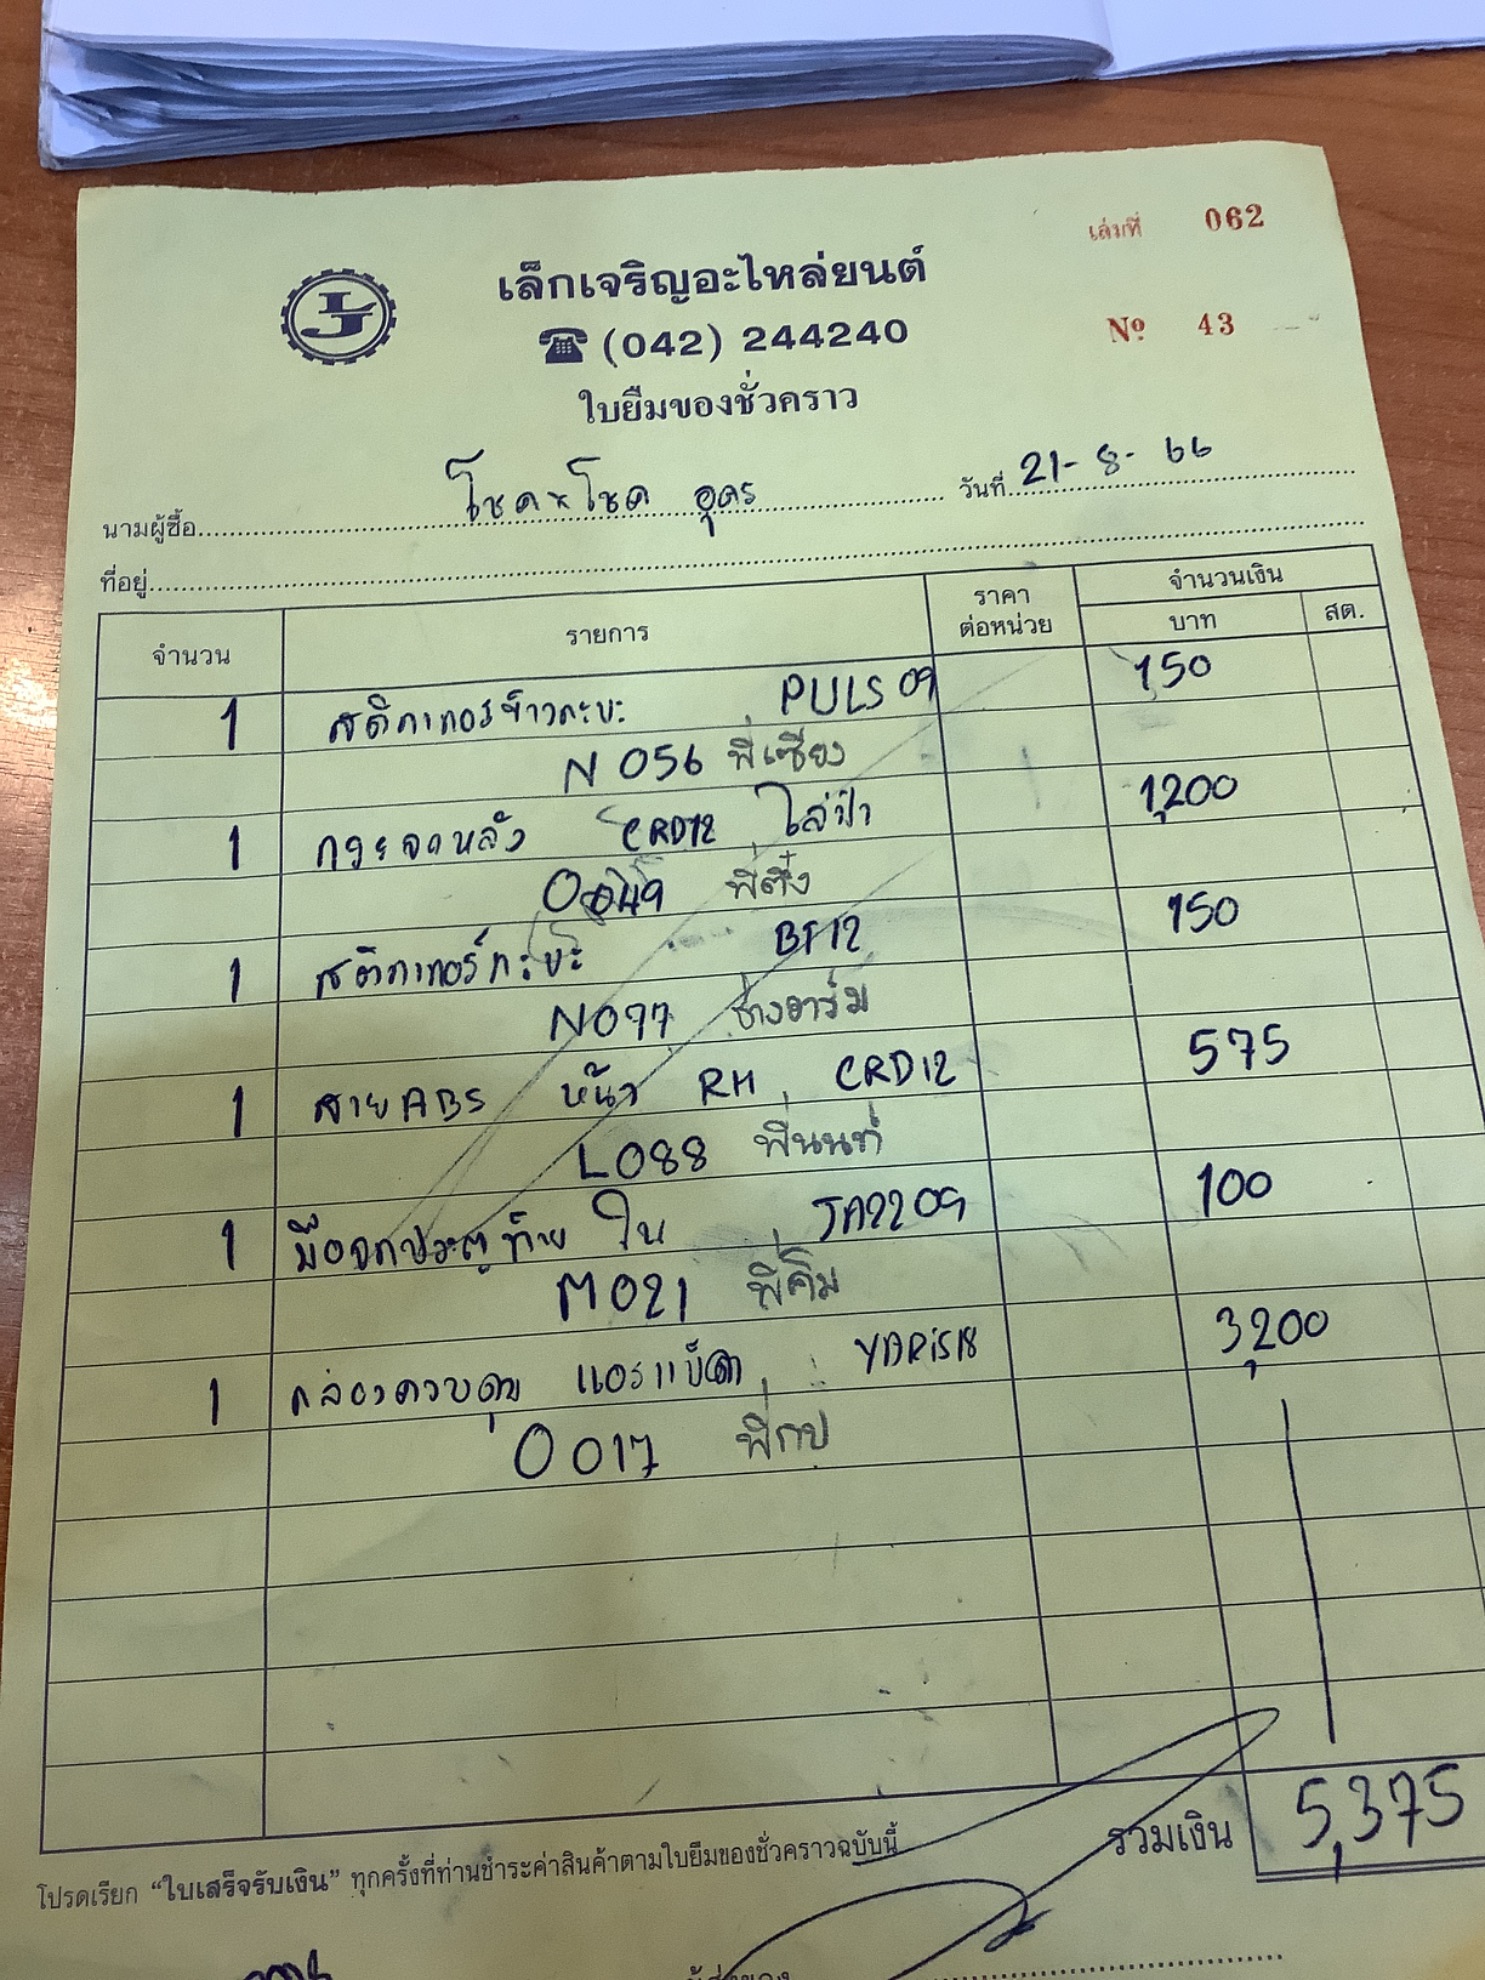 เล่มที่ 062
LJ
เล็กเจริญอะไหล่ยนต์
☎ (042) 244240
Nº 43
ใบยืมของชั่วคราว
นามผู้ซื้อ โชค×โชค อุดร วันที่ 21-8-66
ที่อยู่
จำนวน รายการ ราคาต่อหน่วย จำนวนเงิน
บาท สต.
1 สติกเกอร์ข้างกะบะ PULS 09 150
N 056 พี่เซียง
1 กระจกหลัง CRD12 ใส่ฝ้า 1,200
0049 พี่ติ่ง
1 สติกเกอร์กะบะ BT12 150
N077 ช่างอาร์ม
1 สาย ABS หน้า RH CRD12 575
L088 พี่นนท์
1 มือจกประตูท้าย ใน JA2209 100
M021 พี่คิม
1 กล่องควบคุม แอร์แบ็ค YARiS18 3,200
0017 พี่กบ
รวมเงิน 5,375
โปรดเรียก “ใบเสร็จรับเงิน” ทุกครั้งที่ท่านชำระค่าสินค้าตามใบยืมของชั่วคราวฉบับนี้